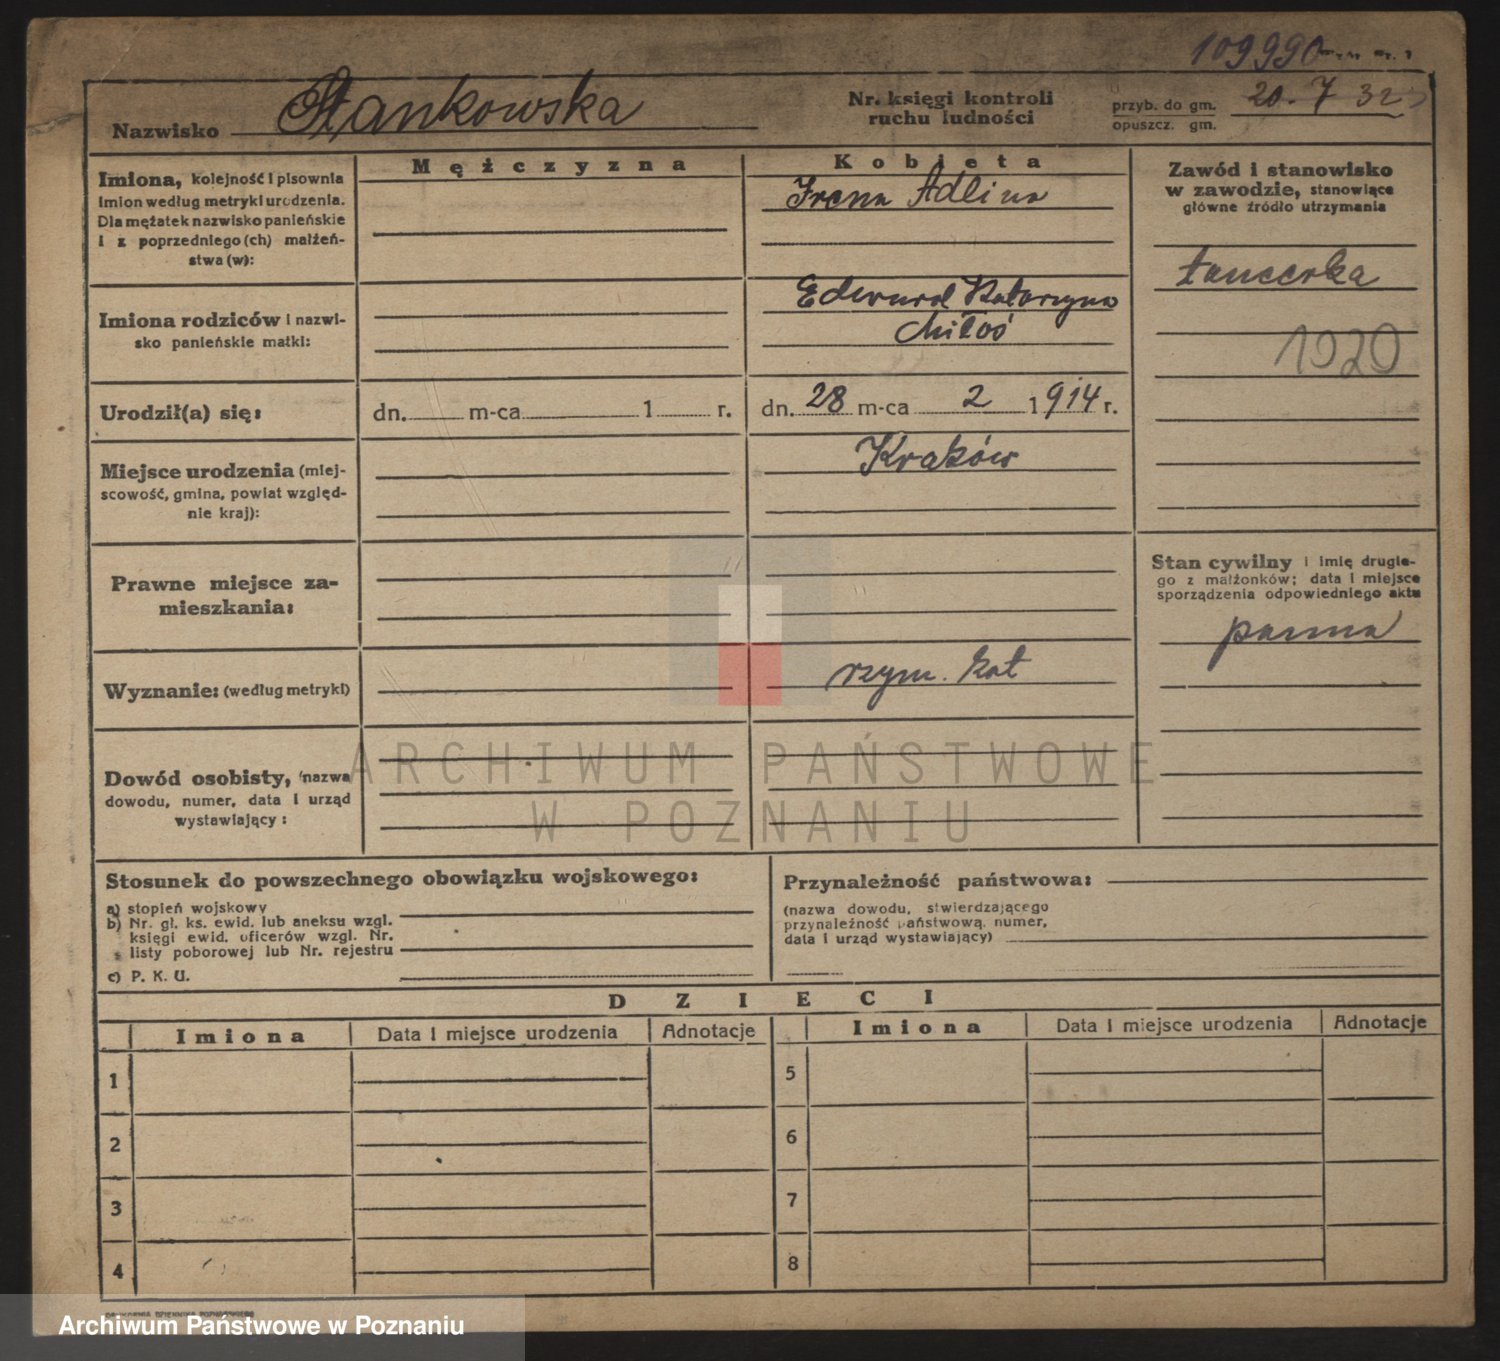 109990
Nazwisko Stankowska
Nr. księgi kontroli
ruchu ludności
przyb. do gm. 20. 7 32
opuszcz. gm.
Mężczyzna
Kobieta
Imiona, kolejność i pisownia
imion według metryki urodzenia.
Dla mężatek nazwisko panieńskie
i z poprzedniego (ch) małżeń-
stwa (w):
Irena Adlina
Zawód i stanowisko
w zawodzie, stanowiące
główne źródło utrzymania
tancerka
1929
Imiona rodziców i nazwi-
sko panieńskie matki:
Edward Katarzyna
Miłoś
Urodził(a) się:
dn. m-ca 1 r.
dn. 28 m-ca 2 1914 r.
Miejsce urodzenia (miej-
scowość, gmina, powiat względ-
nie kraj):
Kraków
Prawne miejsce za-
mieszkania:
Stan cywilny i imię drugie-
go z małżonków; data i miejsce
sporządzenia odpowiedniego aktu
panna
Wyznanie: (według metryki)
rzym. kat
Dowód osobisty, (nazwa
dowodu, numer, data i urząd
wystawiający:
ARCHIWUM PAŃSTWOWE
W POZNANIU
Stosunek do powszechnego obowiązku wojskowego:
a) stopień wojskowy
b) Nr. gł. ks. ewid. lub aneksu wzgl.
księgi ewid. oficerów wzgl. Nr.
listy poborowej lub Nr. rejestru
c) P. K. U.
Przynależność państwowa:
(nazwa dowodu, stwierdzającego
przynależność państwową, numer,
data i urząd wystawiający)
DZIECI
Imiona Data i miejsce urodzenia Adnotacje Imiona Data i miejsce urodzenia Adnotacje
1 5
2 6
3 7
4 8
DRUKARNIA DZIENNIKA POZNAŃSKIEGO
Archiwum Państwowe w Poznaniu